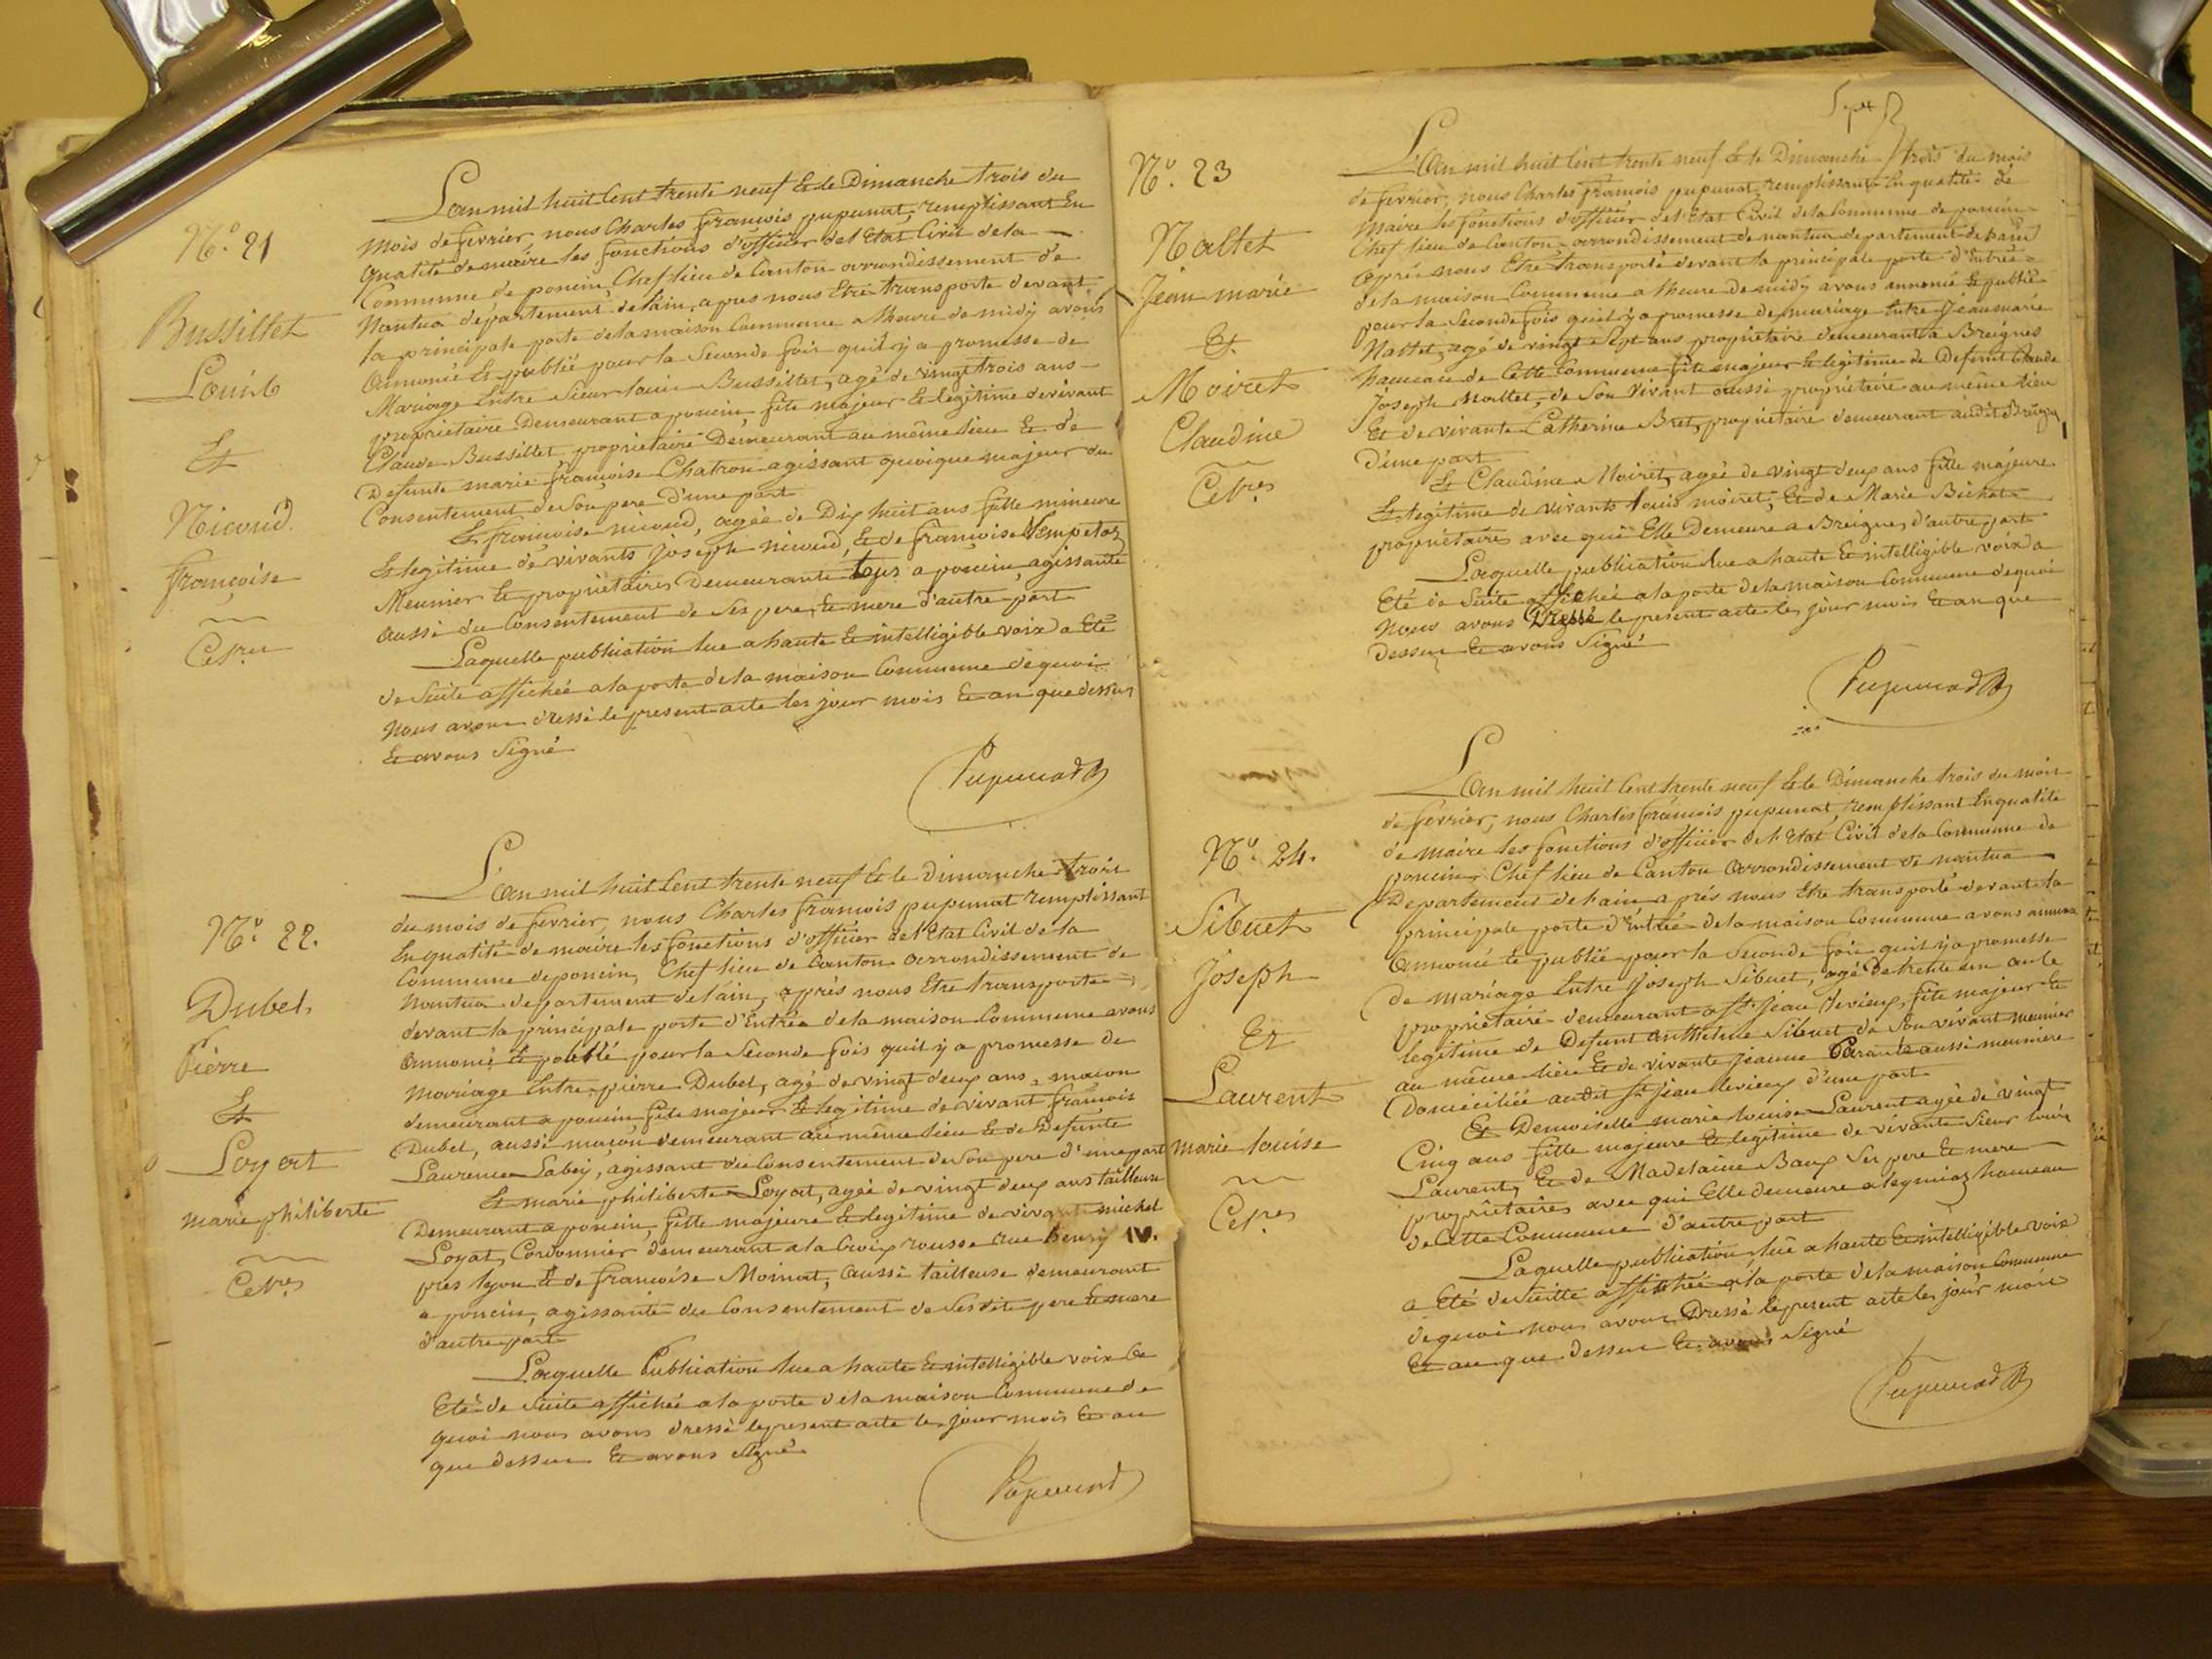 N.º 21
Bussillet
Louis
Et
Nicoud
françoise
L'an mil huit Cent trente neuf Et le Dimanche trois du
mois de fevrier nous Charles françois pupunat, remplissant En
qualité de maire les fonctions d'officier del'Etat Civil dela
Commune de poncin, Chef lieu de Canton arrondissement de
Nantua département delain, apres nous Etre transporte devant
la principale porte dela maison Commune a lheure de midy avons
annoncé Et publié pour la Seconde fois quil y a promesse de
Mariage Entre Sieur louis Bussillet, agé de vingt trois ans
propriétaire Demeurant a poncin fils majeur Et legitime de vivant
Claude Bussillet propriétaire Demeurant au même lieu Et de
Defunte marie françoise Chatron agissant quoique majeur du
Consentement de Son pere d'une part
Et françoise nicoud, agée de Dix huit ans fille mineure
Et legitime de vivants joseph nicoud, Et de françoise
Meunier Et propriétaires Demeurante tous a poncin, agissante
aussi du Consentement de Ses pere Et mere d'autre part
Laquelle publication lue a haute Et intelligible voix a Eté
de Suite affichée a la porte dela maison Commune dequoi
Nous avons dressé le present acte les jour mois Et an que dessus
Et avons Signé
Pupunat
N.º 22.
Dubet,
Pierre
Et
Loyat
marie philiberte
L'an mil huit Cent trente neuf Et le dimanche trois
du mois de fevrier, nous Charles françois pupunat remplissant
En qualité de maire les fonctions d'officier del'Etat Civil de la
Commune deponcin, Chef lieu de Canton arrondissement de
Nantua departement delain, aprés nous Etre transporte
devant la principale porte d'Entrée dela maison Commune avons
annoncé Et publié pour la Seconde fois quil y a promesse de
mariage Entre pierre Dubet, agé de vingt deux ans, maçon
demeurant a poncin, fils majeur Et legitime de vivant françois
Dubet, aussi maçon demeurant au même lieu Et de Defunte
Laurence Labey, agissant du Consentement de Son pere d'une part
Et marie philiberte Loyat, agée de vingt deux ans tailleuse
Demeurant a poncin, fille majeure Et legitime de vivant michel
Loyat, Cordonnier demeurant a la Croix rousse rue henry IV.
prés lyon Et de françoise Moinat, aussi tailleuse demeurant
a poncin, agissante du Consentement de Ses dits pere Et mere
d'autre part
Laquelle Publication lue a haute Et intelligible voix a
Eté de Suite affichée a la porte dela maison Commune de
quoi nous avons dressé le present acte les jour mois Et an
que dessus Et avons Signé
Pupunat
Sept
N.º 23
Nallet
Jean marie
Et
Moiret
Claudine
L'an mil huit Cent trente neuf Et le Dimanche trois du mois
de fevrier, nous Charles françois pupunat, remplissant En qualité de
maire les fonctions d'officier del'Etat Civil dela Commune de poncin
Chef lieu de Canton arrondissement de nantua departement de lain
aprés nous Etre transporté devant la principale porte d'Entrée
dela maison Commune a lheure de midy avons annoncé Et publié
pour la Seconde fois quil y a promesse de mariage Entre Jean marie
Nallet, agé de vingt Sept ans propriétaire demeurant a Breignes
hameau de Cette Commune fils majeur Et legitime de Defunt Claude
Joseph Nallet, de Son Vivant aussi propriétaire au même lieu
Et de vivante Catherine Bret, propriétaire demeurant audit
d'une part
Et Claudine Moiret, agée de vingt deux ans fille majeure
Et legitime de vivants louis moiret, Et de Marie Bichat
propriétaires avec qui Elle Demeure a Breignes, d'autre part
Laquelle publication lue a haute Et intelligible voix a
Eté de Suite affichée a la porte dela maison Commune dequoi
nous avons Dressé le present acte les jour mois Et an que
dessus Et avons Signé
Pupunat
N.º 24.
Sibuet
Joseph
Et
Laurent
marie louise
L'an mil huit Cent trente neuf Et le Dimanche trois du mois
de fevrier, nous Charles françois pupunat, remplissant En qualité
de maire les fonctions d'officier de l'Etat Civil dela Commune de
poncin, Chef lieu de Canton Arrondissement de nantua
Departement delain aprés nous Etre transporté devant la
principale porte d'Entrée dela maison Commune avons
annoncé Et publié pour la Seconde fois quil y a promesse
de mariage Entre Joseph Sibuet, agé de trente un ans
propriétaire demeurant a St Jean levieux, fils majeur Et
legitime de Defunt Anthelme Sibuet de Son vivant meunier
au même lieu Et de vivante jeanne aussi meuniere
Domiciliée audit St jean levieux d'une part
Et Demoiselle marie louise Laurent agée de vingt
Cinq ans fille majeure Et legitime de vivants Sieur louis
Laurent, Et de Madelaine Baux Ses pere Et mere
propriétaires avec qui Elle demeure a leymiaz hameau
de Cette Commune d'autre part
Laquelle publication, lue a haute Et intelligible voix
a Eté de Suitte affichée a la porte dela maison Commune
dequoi nous avons Dressé le present acte les jour mois
Et an que dessus Et avons Signé
Pupunat